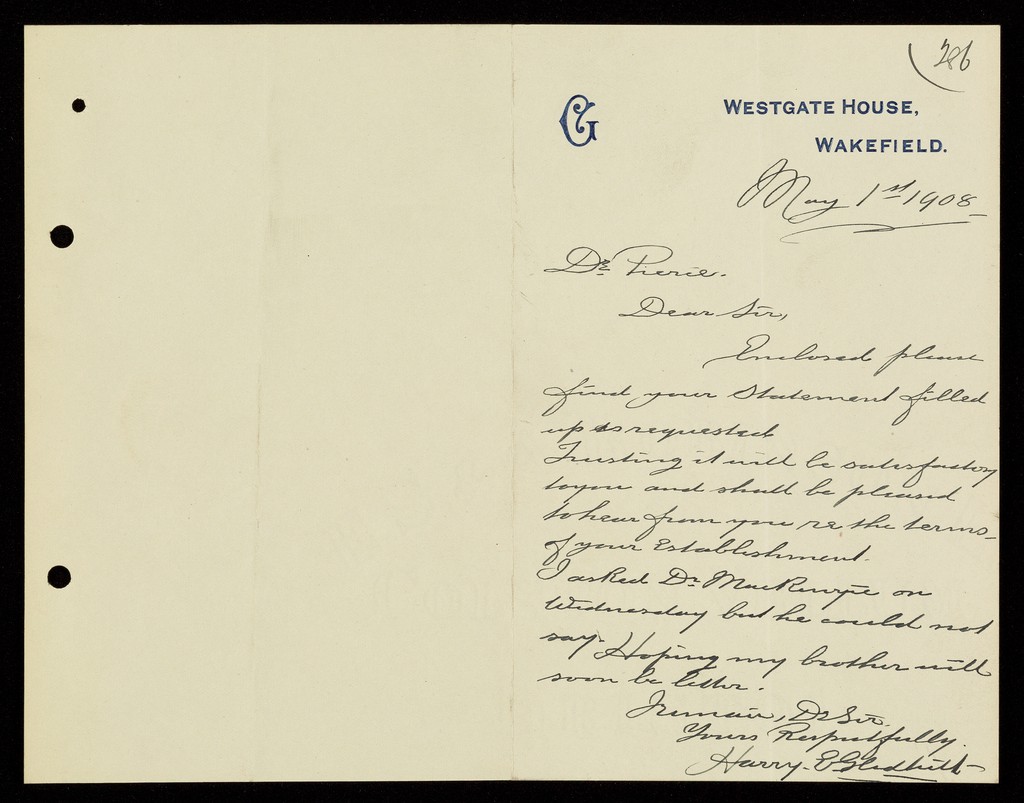 286
CG
WESTGATE HOUSE,
WAKEFIELD.
May 1st 1908
Dr Pierce.
Dear Sir,
Enclosed please
find your Statement filled
up as requested
Trusting it will be satisfactory
to you and shall be pleased
to hear from you re the terms
of your Establishment.
I asked Dr MacKenzie on
Wednesday but he could not
say. Hoping my brother will
soon be better.
I remain, Dr Sir.
Yours Respectfully.
Harry. E Gledhill